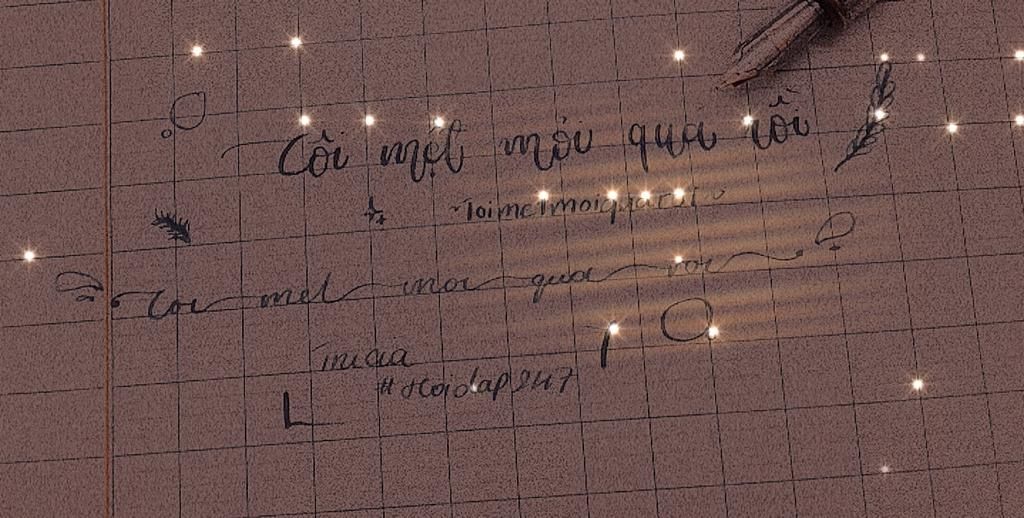 Tôi mệt mỏi quá rồi
Toimetmoiquaroi
Toi met moi qua roi
#Hoidap247